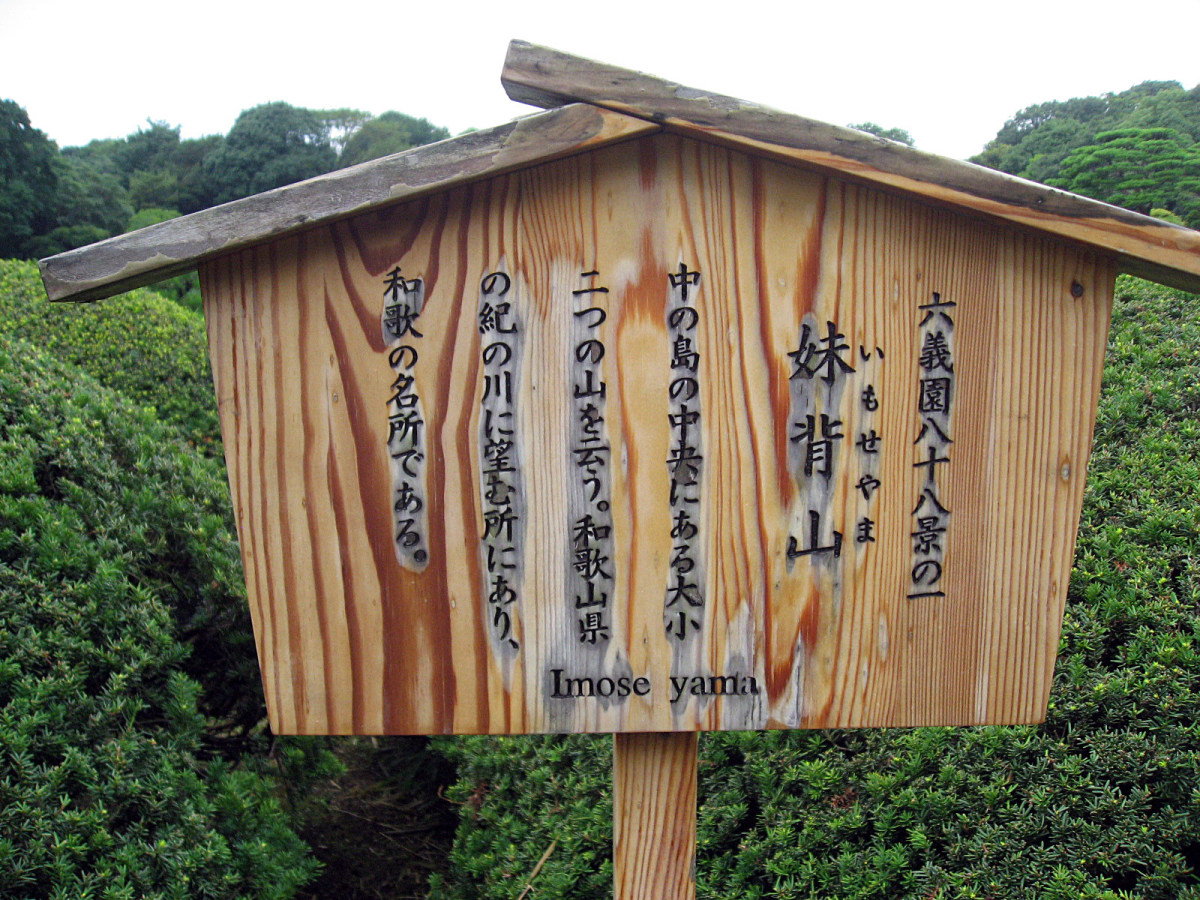 六義園八十八景の一
いもせやま
妹背山
中の島の中央にある大小
二つの山を云う。和歌山県
の紀の川に望む所にあり、
和歌の名所である。
Imose yama